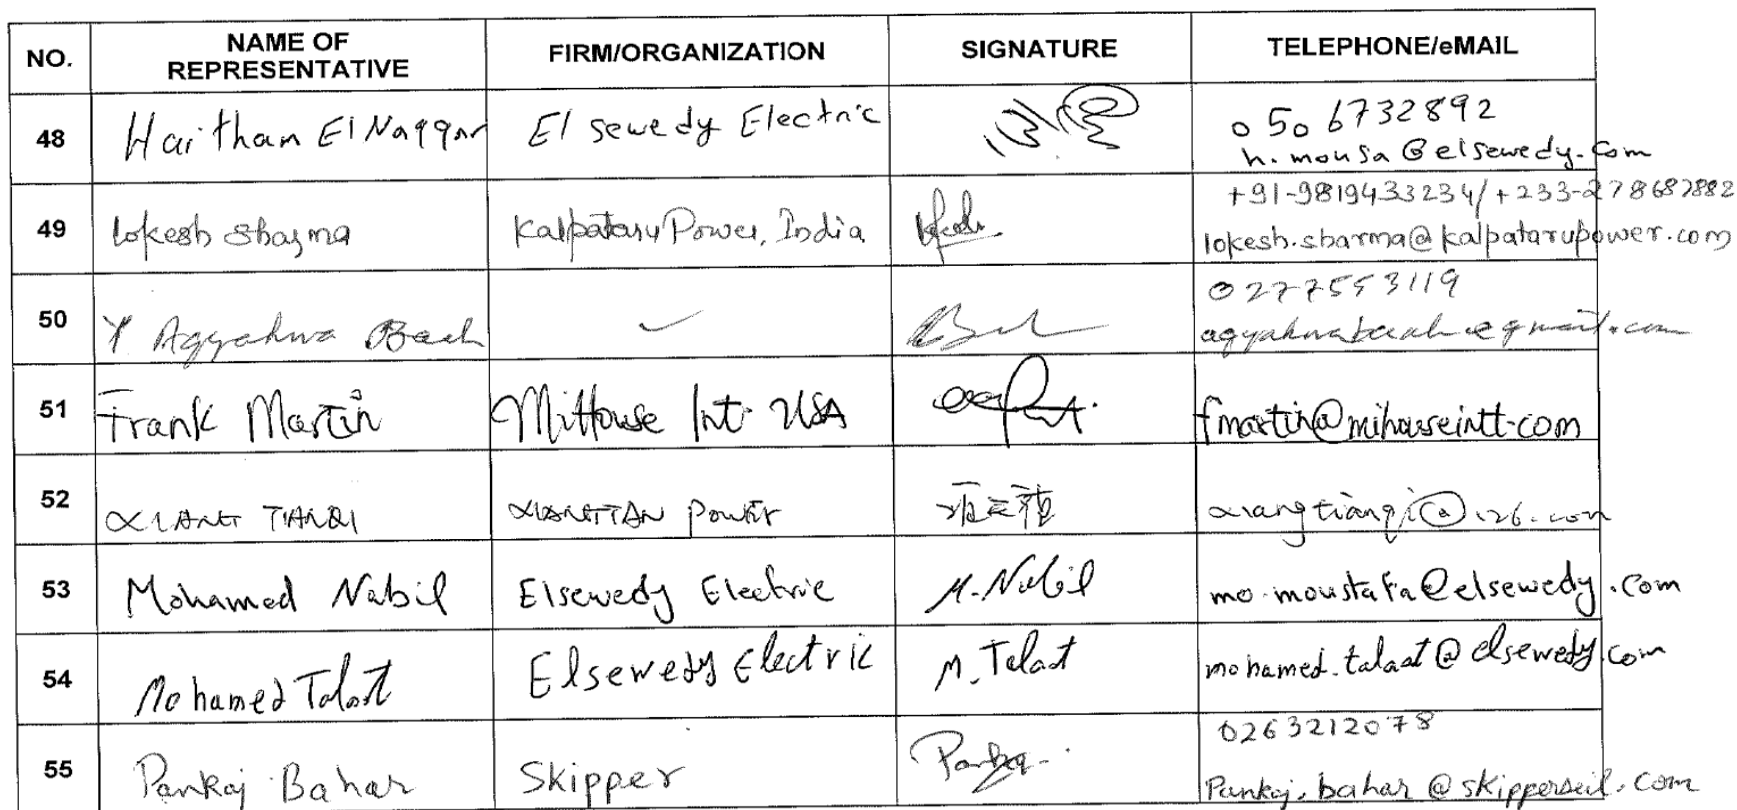 NO. NAME OF REPRESENTATIVE FIRM/ORGANIZATION SIGNATURE TELEPHONE/eMAIL
48 Haitham El Naggar El sewedy Electric 050 6732892
h.mousa@elsewedy.com
49 Lokesh Sharma Kalpataru Power, India +91-9819433234/+233-278687882
lokesh.sharma@kalpatarupower.com
50 Y Agyakwa Baah 0277553119
agyakwabaah@gmail.com
51 Frank Martin MiHouse Int. USA fmartin@mihouseintt.com
52 XIANG TIANQI XIANGTAN Power xiangtianqi@126.com
53 Mohamed Nabil Elsewedy Electric M. Nabil mo.moustafa@elsewedy.com
54 Mohamed Talaat Elsewedy Electric M. Talaat mohamed.talaat@elsewedy.com
55 Pankaj Bahar Skipper Pankaj 0263212078
Pankaj.bahar@skipperseil.com